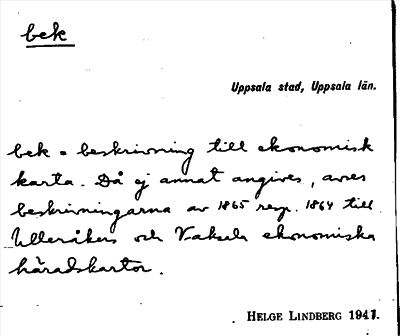 bek
Uppsala stad, Uppsala län.
bek = beskrivning till ekonomisk
karta. Då ej annat angives, avses
beskrivningarna av 1865 resp. 1864 till
Ulleråkers och Vaksala ekonomiska
häradskartor.
HELGE LINDBERG 1941.